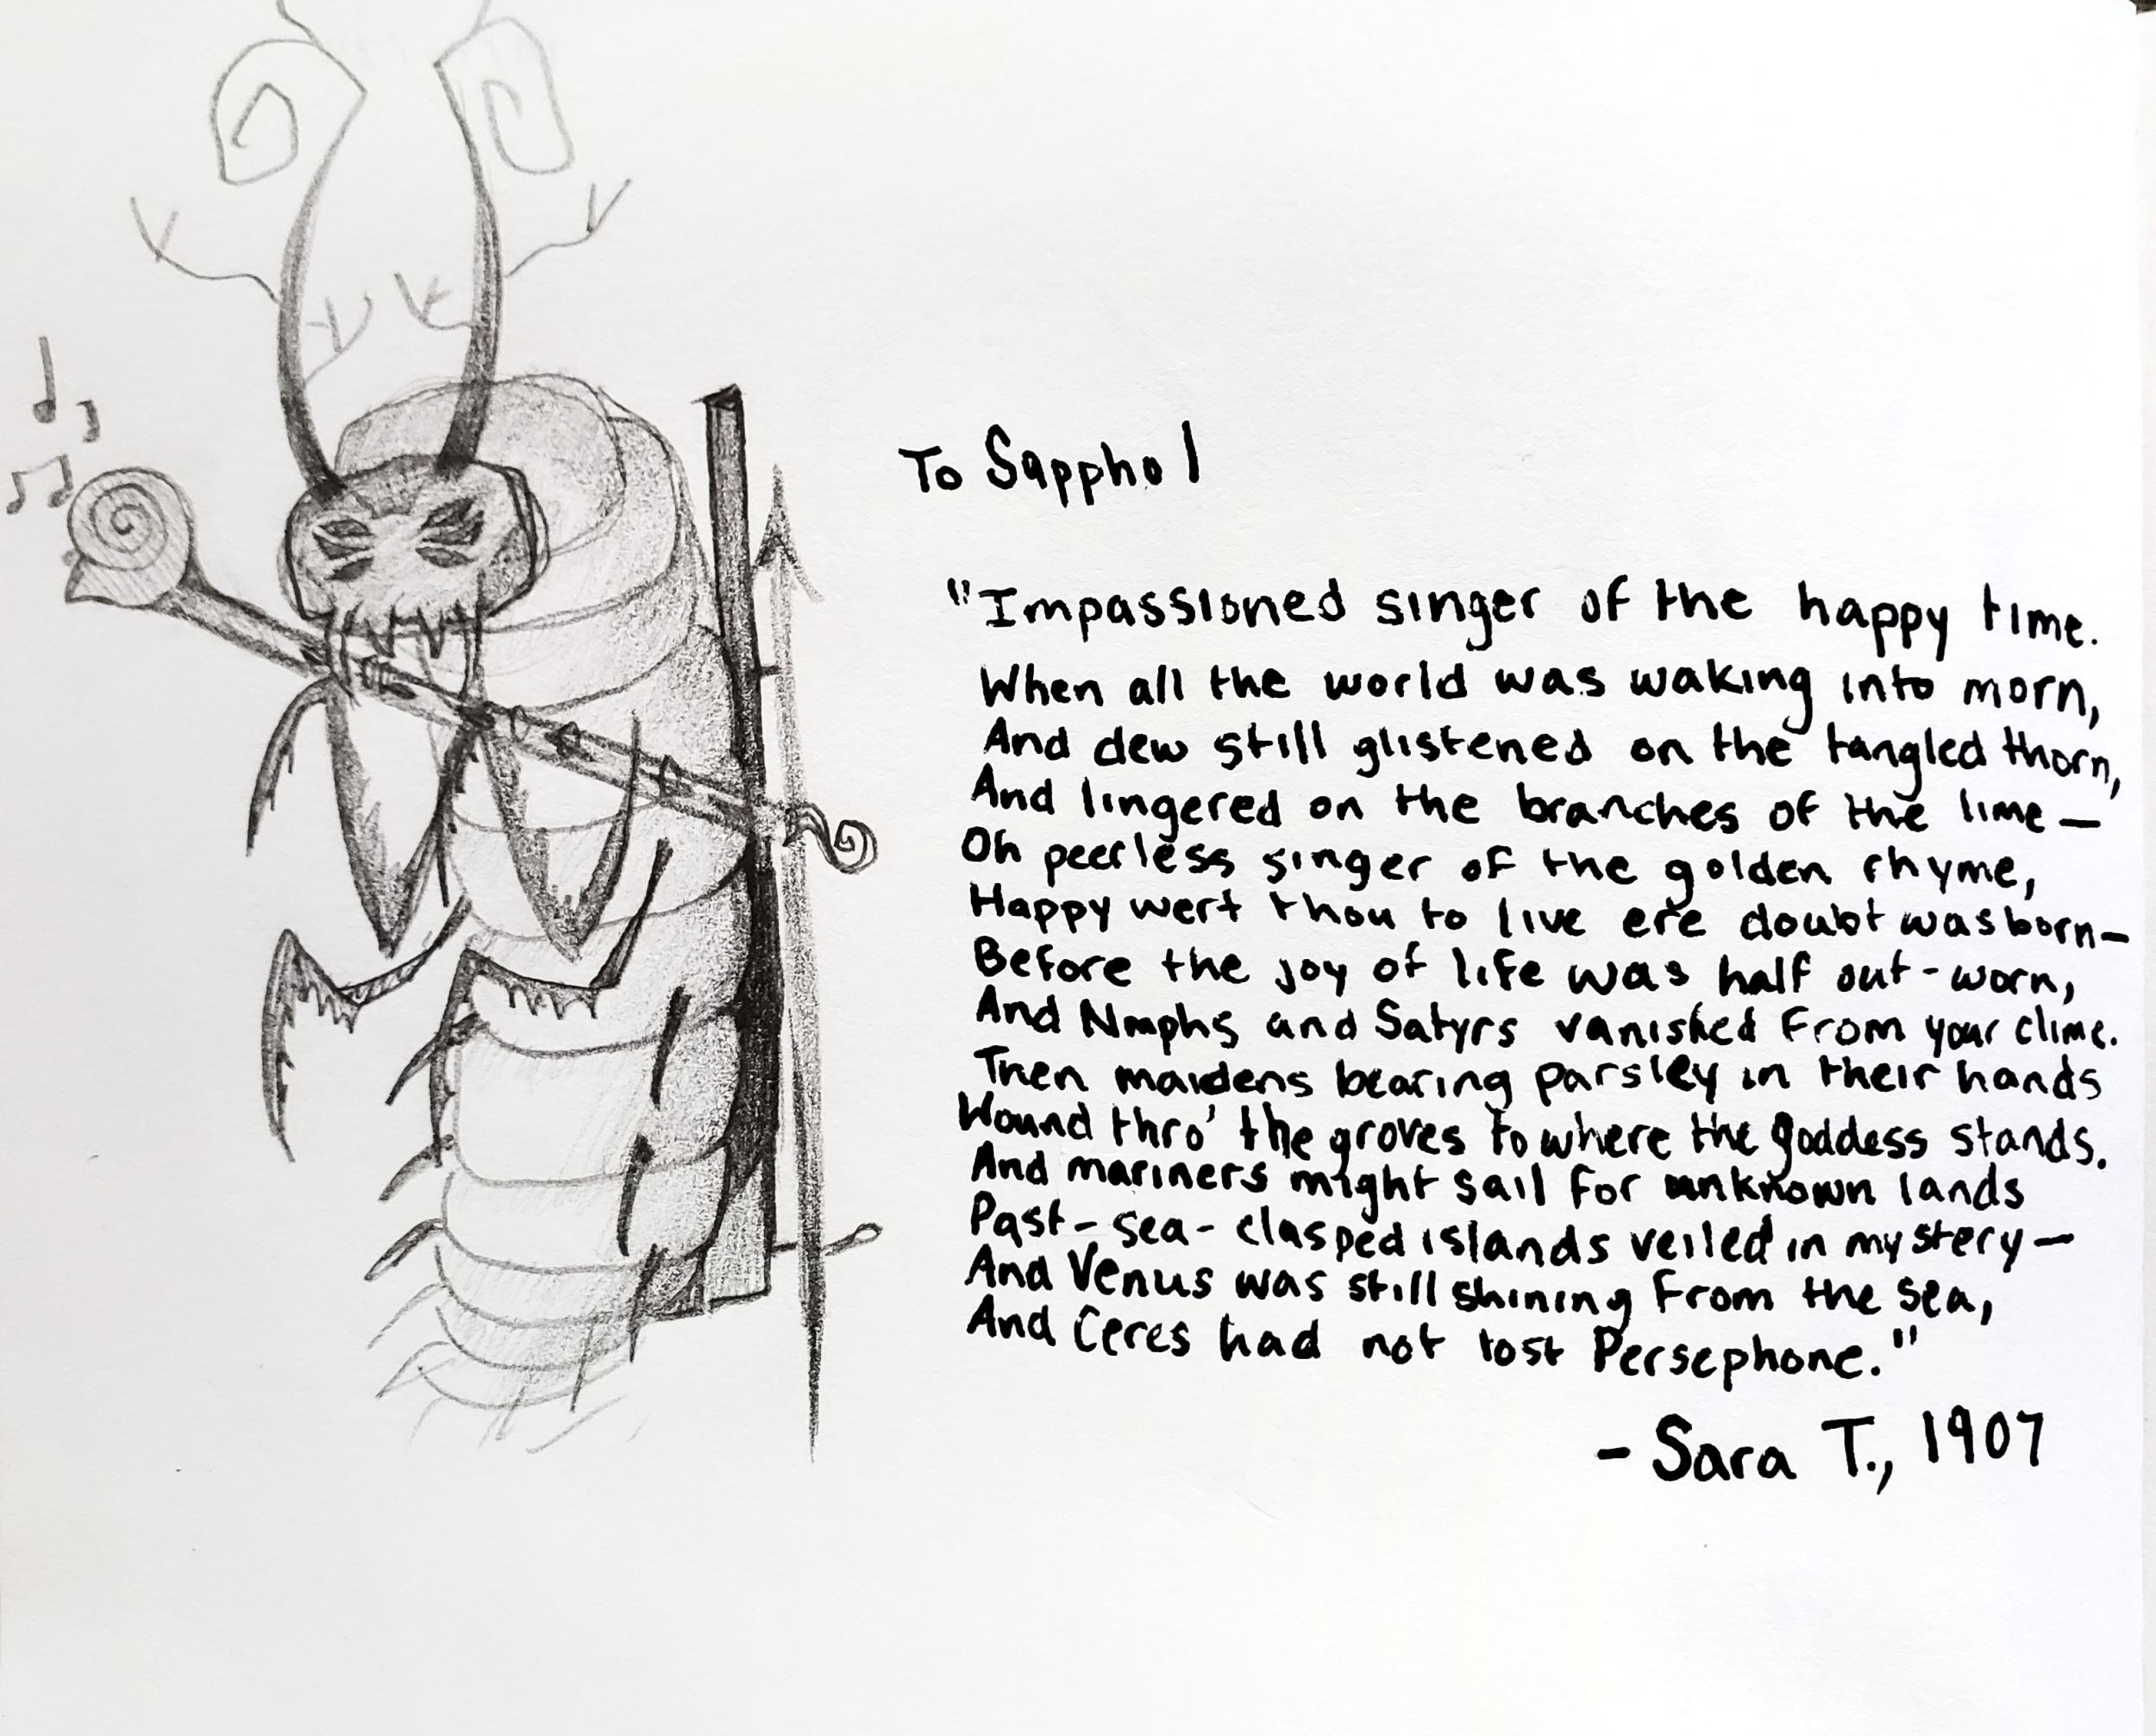 To Sappho I
"Impassioned singer of the happy time.
When all the world was waking into morn,
And dew still glistened on the tangled thorn,
And lingered on the branches of the lime—
Oh peerless singer of the golden rhyme,
Happy wert thou to live ere doubt was born—
Before the joy of life was half out-worn,
And Nmphs and Satyrs vanished from your clime.
Then maidens bearing parsley in their hands
Wound thro' the groves to where the goddess stands.
And mariners might sail for unknown lands
Past-sea-clasped islands veiled in mystery—
And Venus was still shining from the sea,
And Ceres had not lost Persephone."
- Sara T., 1907